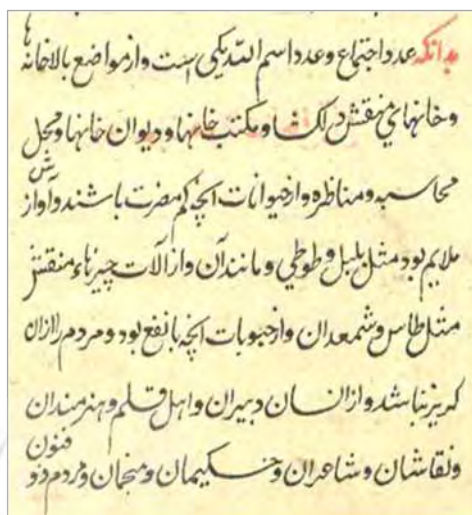 بدانکه عدد اجتماع و عدد اسم الله یکی است و از مواضع بالاخانه‌ها
و خانهای منقش دلکشا و مکتب خانها و دیوان خانها و محل
محاسبه و مناظره و از حیوانات آنچه کم مضرت باشند و آوازش
ملایم بود مثل بلبل و طوطی و مانند آن و از آلات چیزهاء منقش
مثل طاس و شمعدان و از حبوبات آنچه با نفع بود و مردم را ازان
کریز نباشد و از انسان دبیران و اهل قلم و هنرمندان
و نقاشان و شاعران و حکیمان و منجمان و مردم ذو فنون